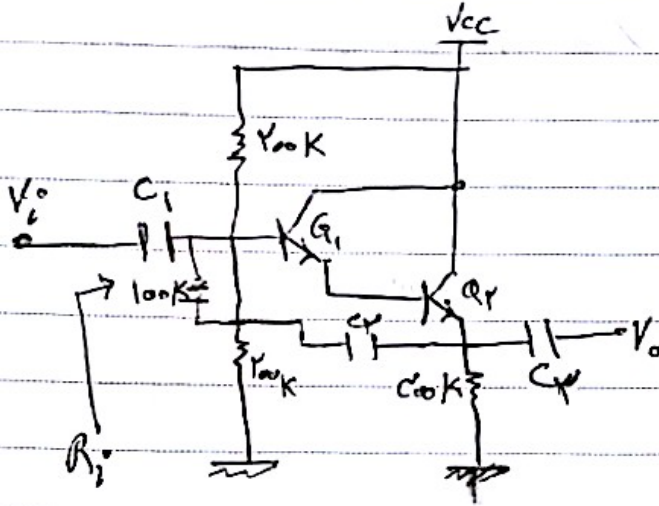 Vcc
۲۰۰K
Vi
C1
Q1
100K
Q۲
C۲
Vo
۲۰۰K
C۳
Ri